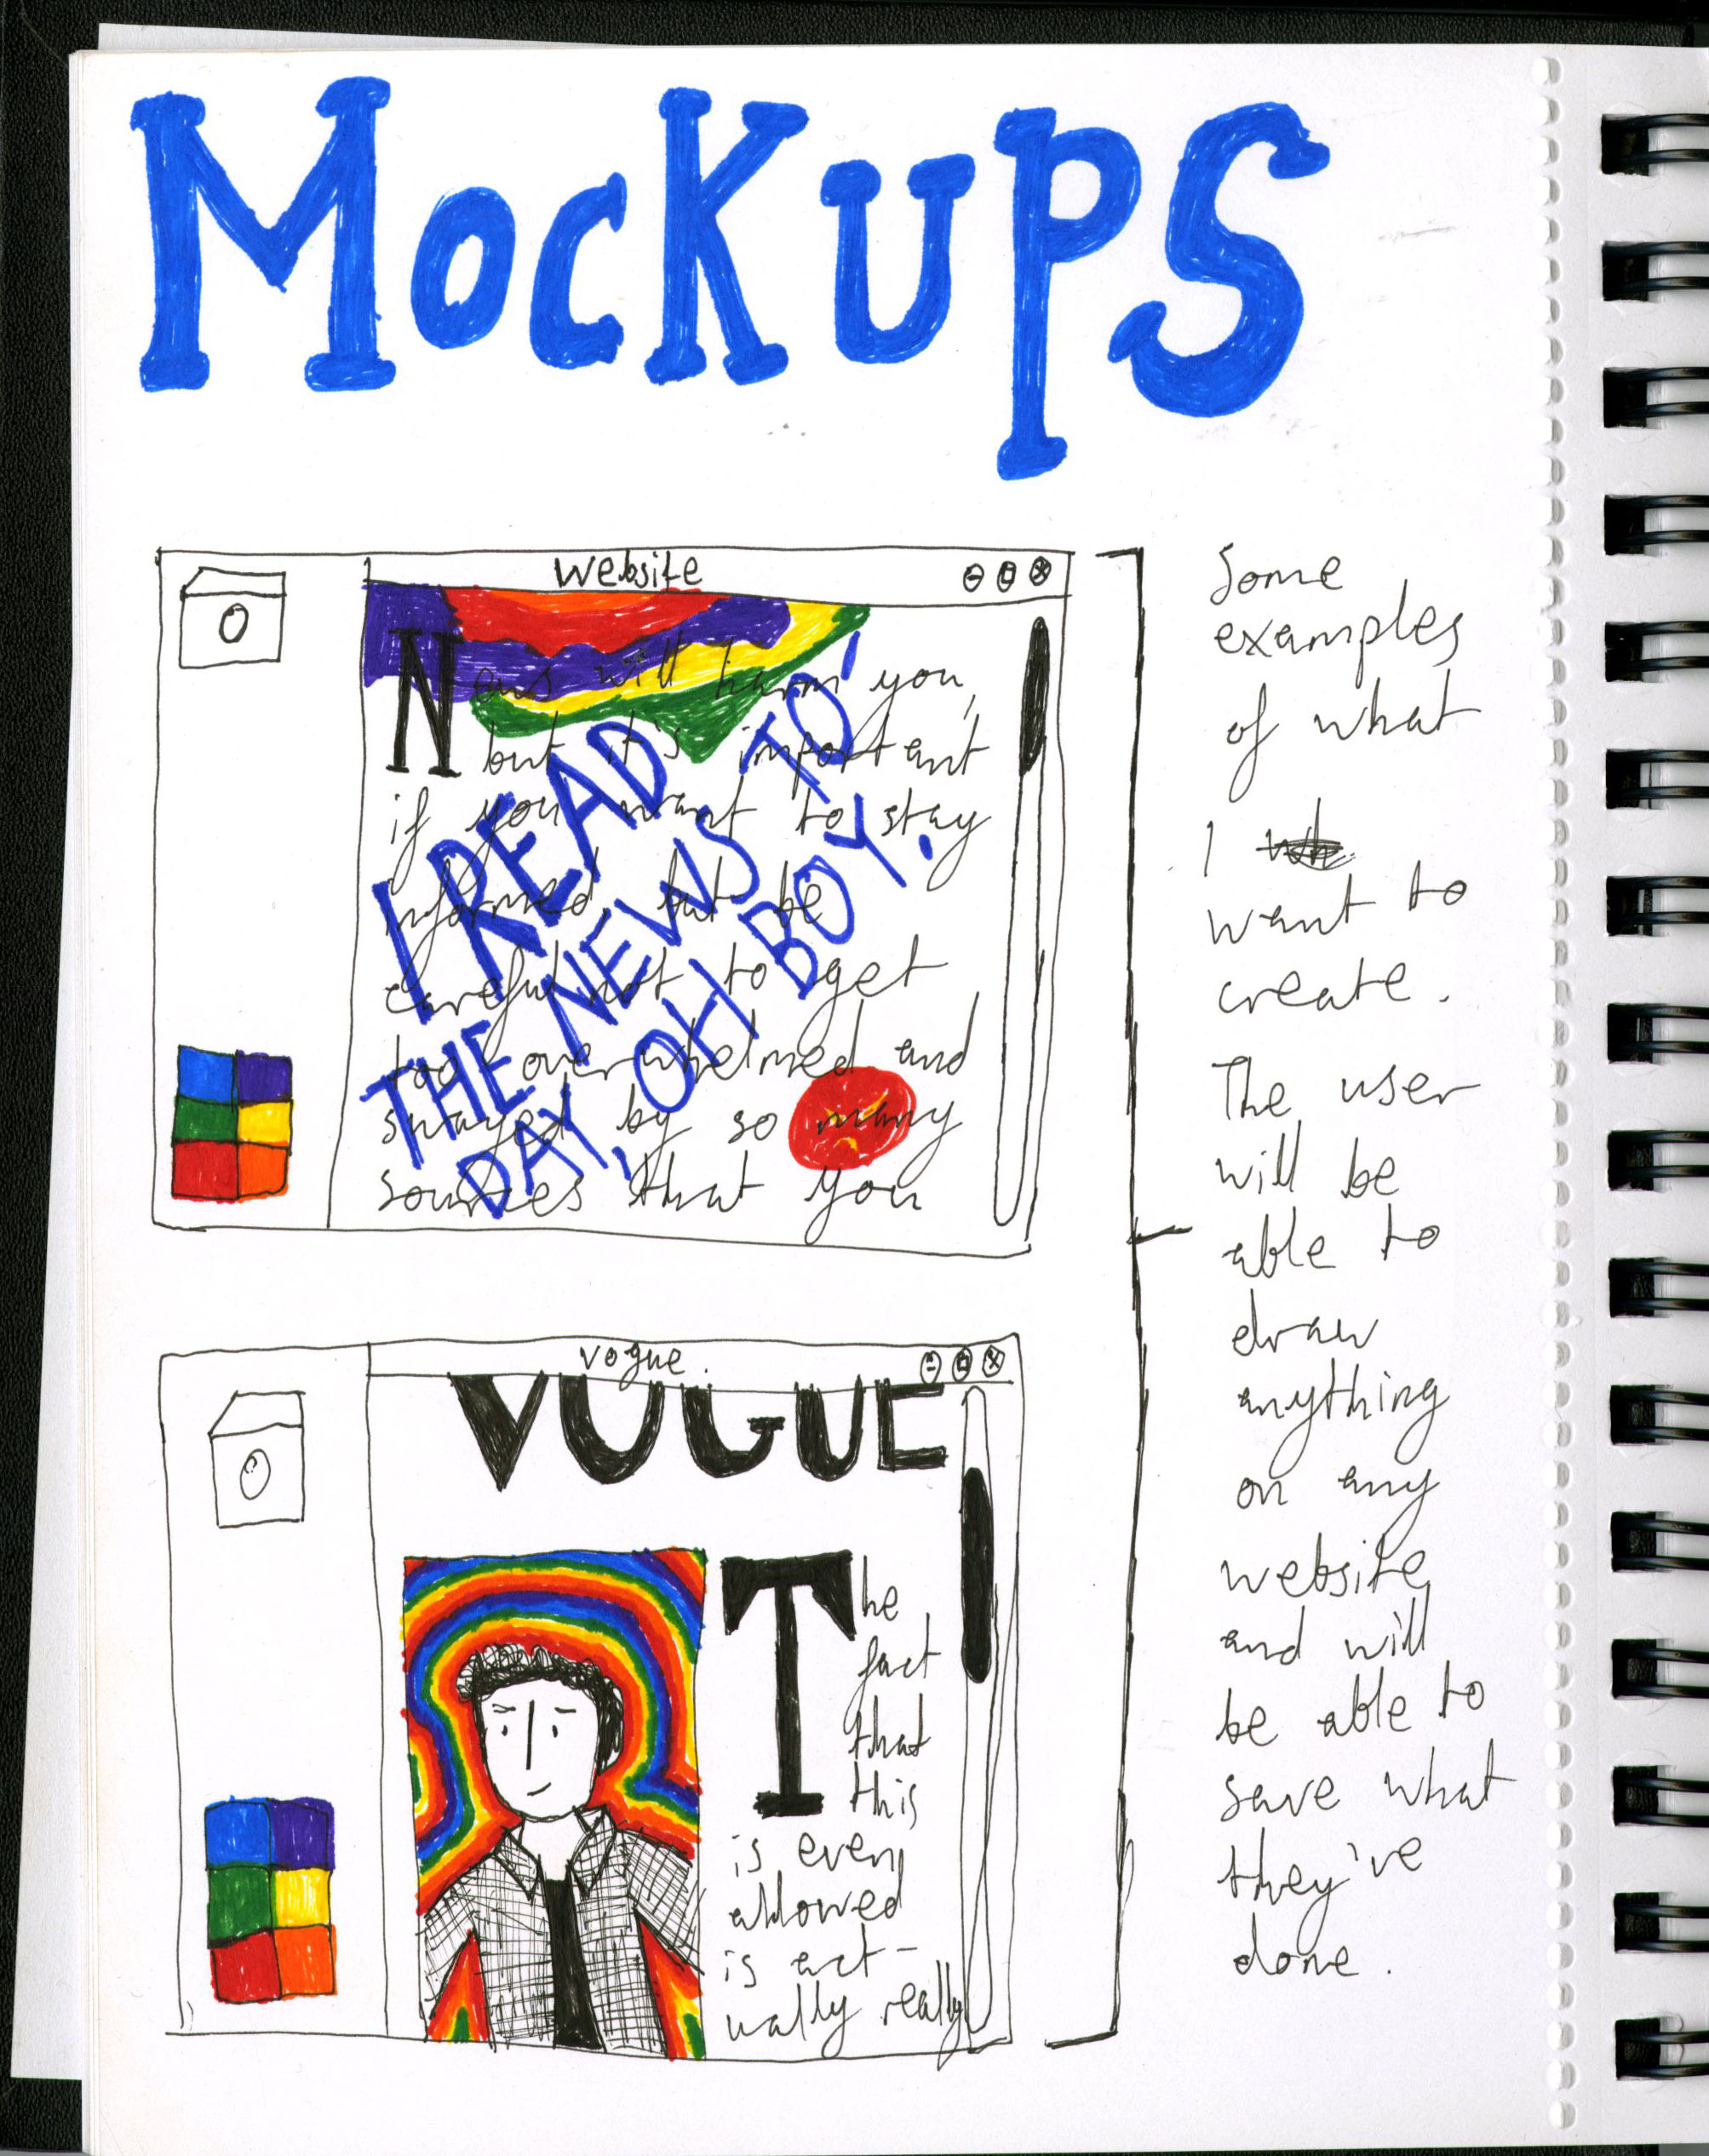 MocKuPS
website
News will harm you,
but it's important
if you want to stay
informed, but be
careful not to get
too overwhelmed and
swayed by so many
sources that you
I READ
THE NEWS TO
DAY, OH BOY.
vogue.
VOGUE
The
fact
that
this
is even
allowed
is act-
ually really
Some
examples
of what
I
want to
create.
The user
will be
able to
draw
anything
on any
website
and will
be able to
save what
they've
done.